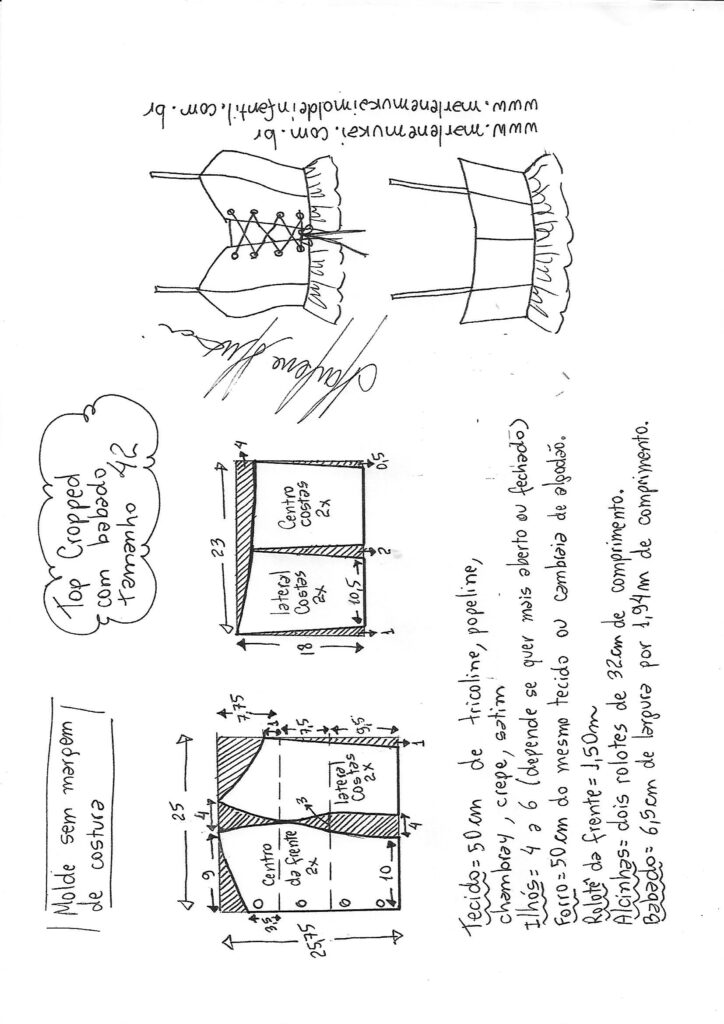 Molde sem margem
de costura
Top Cropped
com babado
tamanho 42
25
9
4
7,75
3,5
1
7,5
9,5
3
25,75
10
4
1
Centro
da frente
2x
lateral
Costas
2x
23
4
18
10,5
1
2
0,5
lateral
Costas
2x
Centro
costas
2x
Marlene Mukai
www.marlenemukai.com.br
www.marlenemukaimoldeinfantil.com.br
Tecido= 50 cm de tricoline, popeline,
chambray, crepe, satim
Ilhós= 4 a 6 (depende se quer mais aberto ou fechado)
Forro= 50 cm do mesmo tecido ou cambraia de algodão.
Rolotê da frente= 1,50m
Alcinhas= dois rolotes de 32cm de comprimento.
Babado= 6,5cm de largura por 1,94m de comprimento.